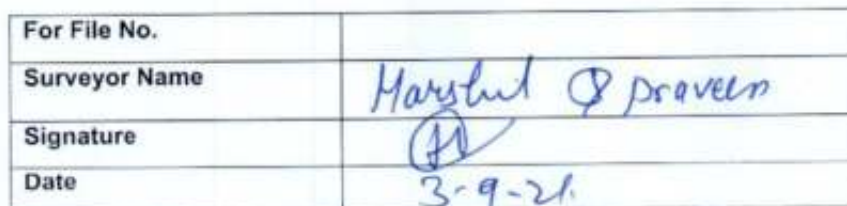 For File No.
Surveyor Name Harshit & praveen
Signature
Date 3-9-21.